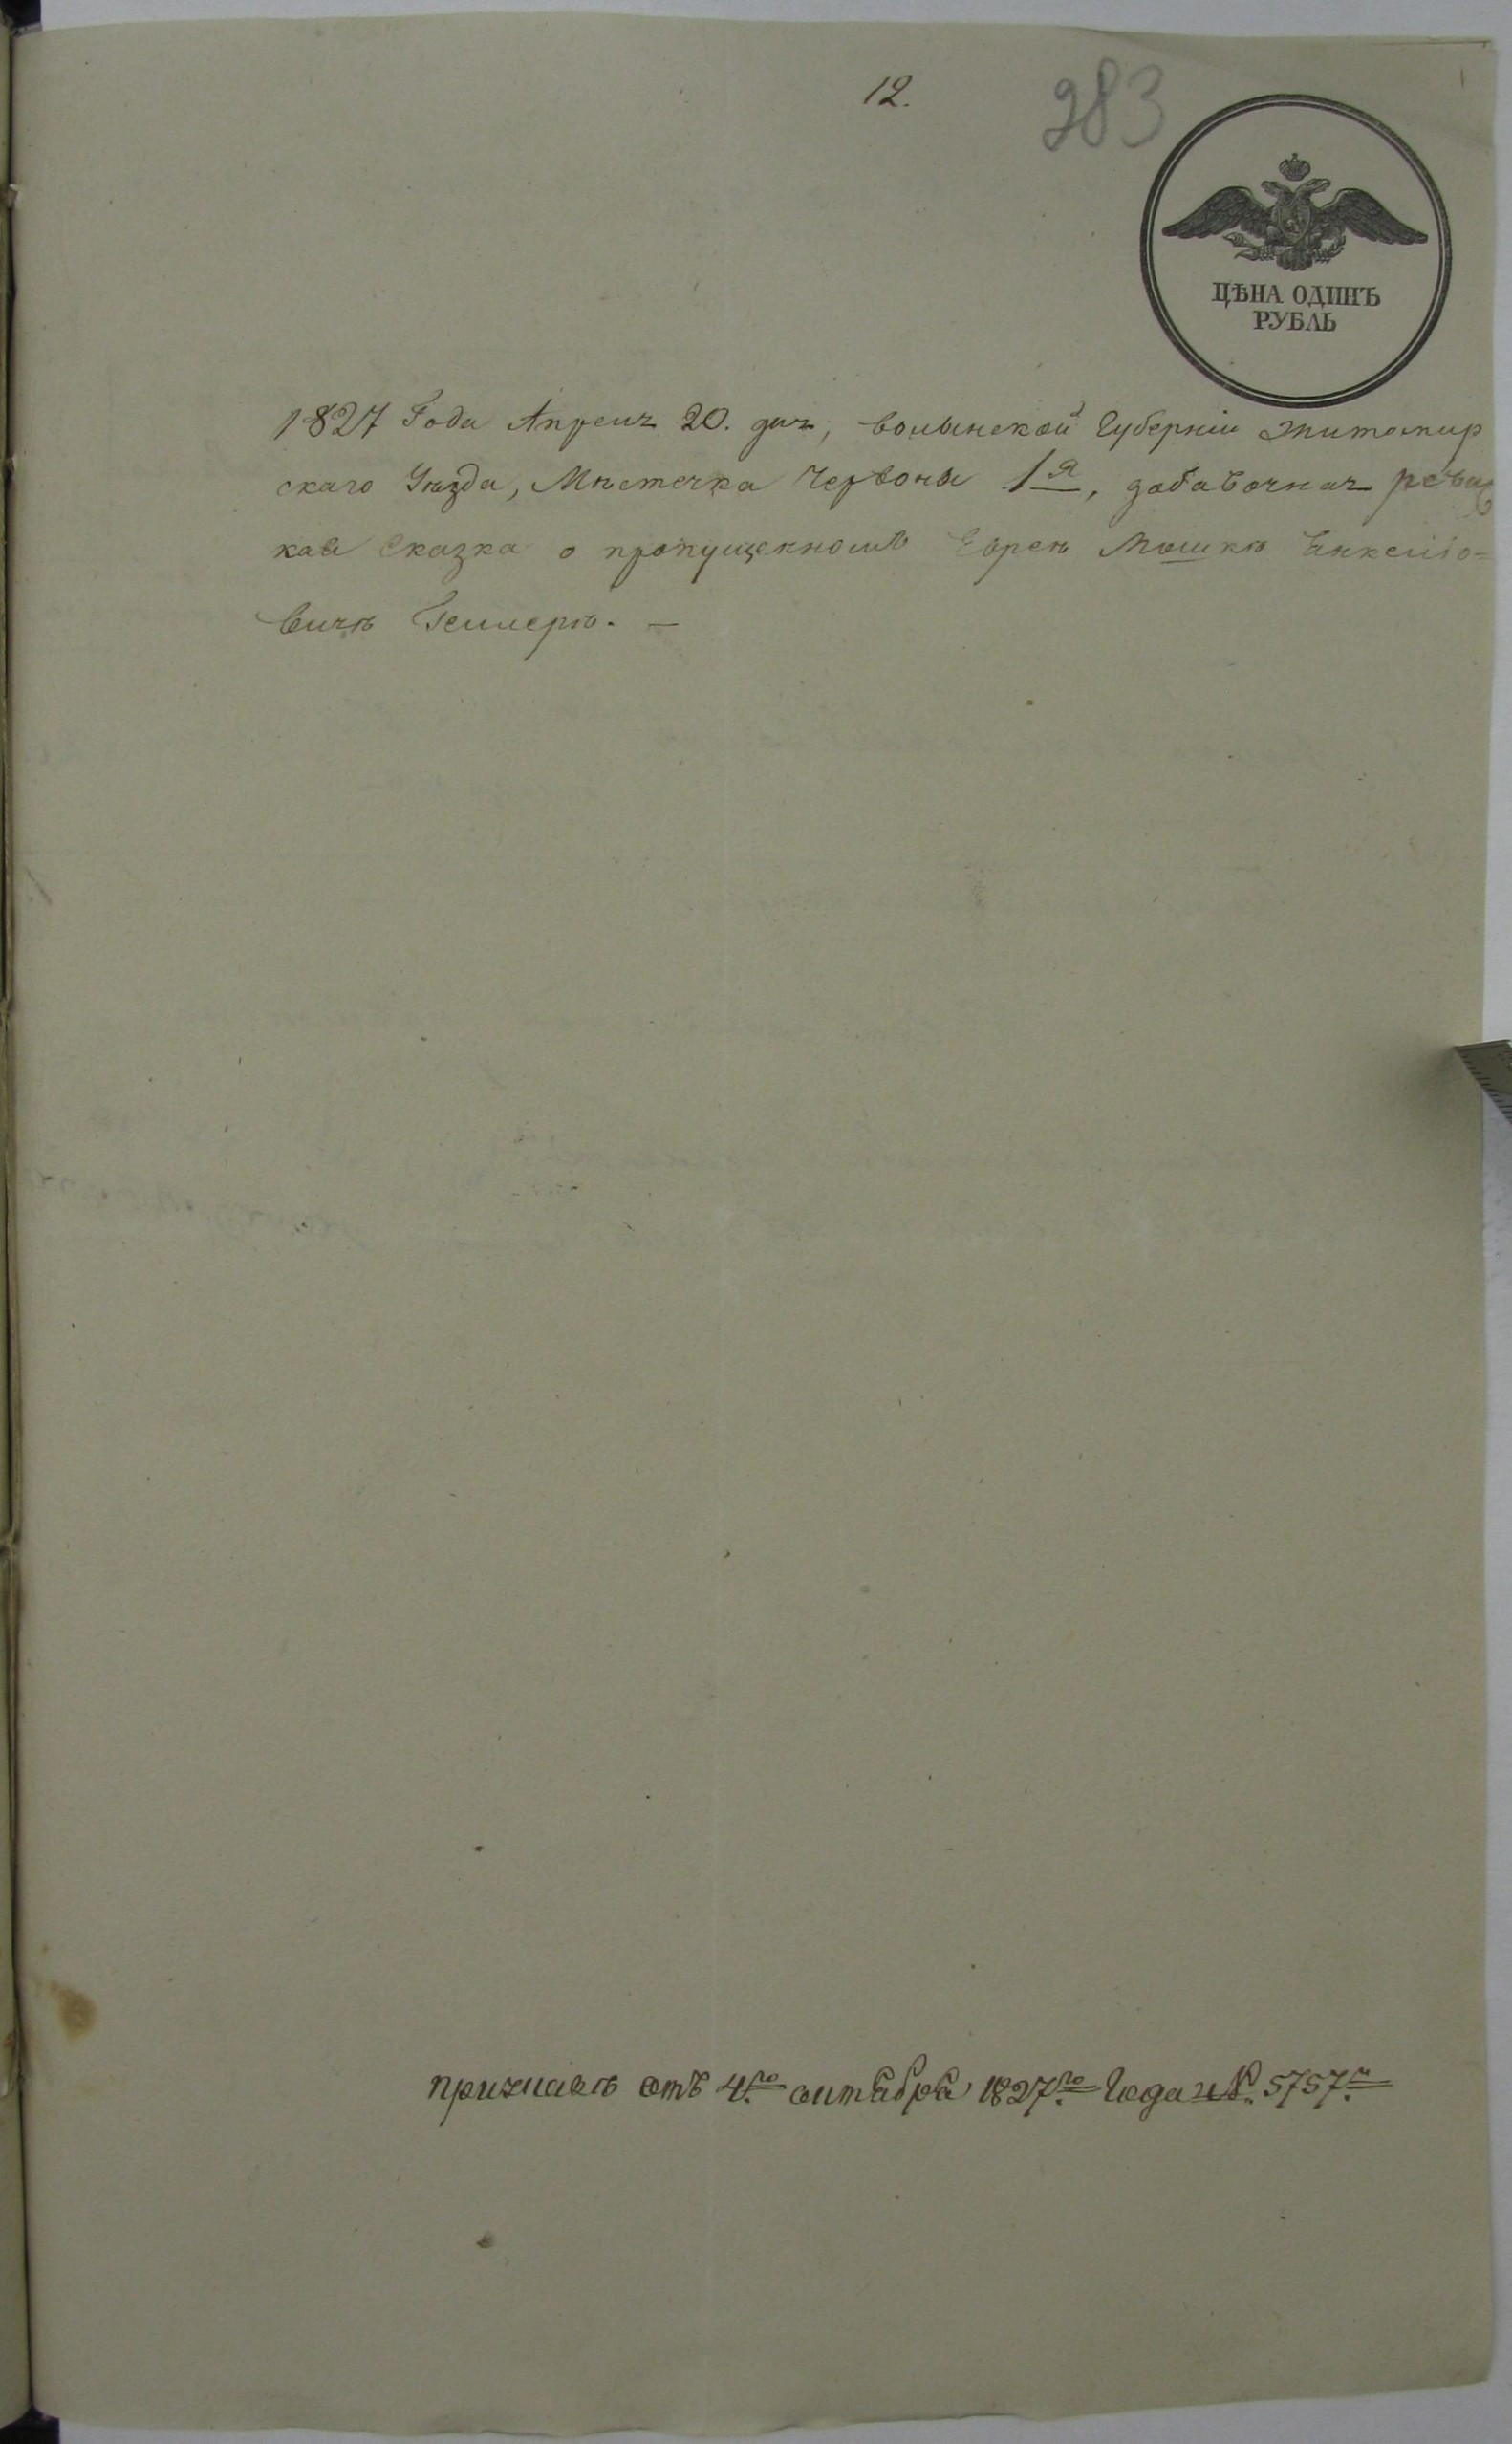 12.
283
ЦѢНА ОДИНЪ
РУБЛЬ
1827 Года Апреля 20. дня, волынской Губерніи Житомир
скаго Уѣзда, Мѣстечка Червоны 1я, добавочная реви
кая Сказка о пропущенномъ Евреѣ Мошкѣ Янкеліо=
вичѣ Геллерѣ. —
отъ 4го октабра 1827го Года № 5757м